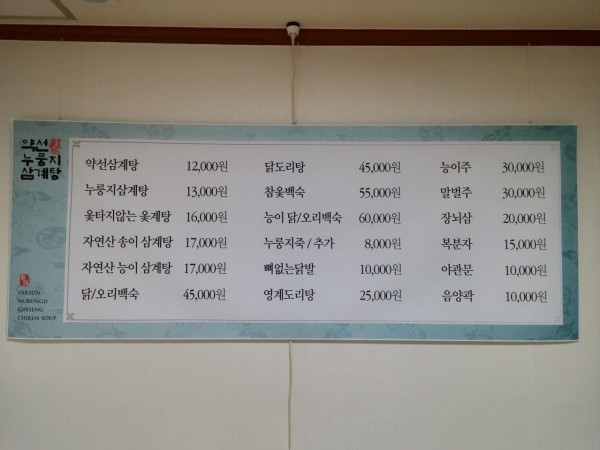 약선
누룽지
삼계탕
YAKSUN
NURUNGJI
GINSENG
CHIKEN SOUP
약선삼계탕 12,000원
누룽지삼계탕 13,000원
옻타지않는 옻계탕 16,000원
자연산 송이 삼계탕 17,000원
자연산 능이 삼계탕 17,000원
닭/오리백숙 45,000원
닭도리탕 45,000원
참옻백숙 55,000원
능이 닭/오리백숙 60,000원
누룽지죽 / 추가 8,000원
뼈없는닭발 10,000원
영계도리탕 25,000원
능이주 30,000원
말벌주 30,000원
장뇌삼 20,000원
복분자 15,000원
야관문 10,000원
음양곽 10,000원